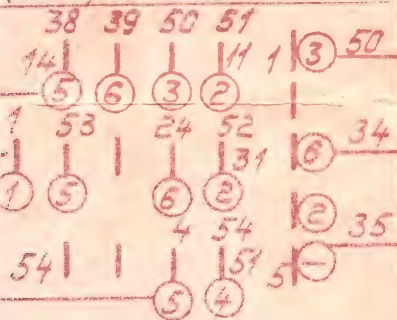 38 39 50 51
14 11 1 3 50
5 6 3 2
1 53 24 52
31 6 34
1 5 6 2
2
4 54 35
54 51 5 –
5 4